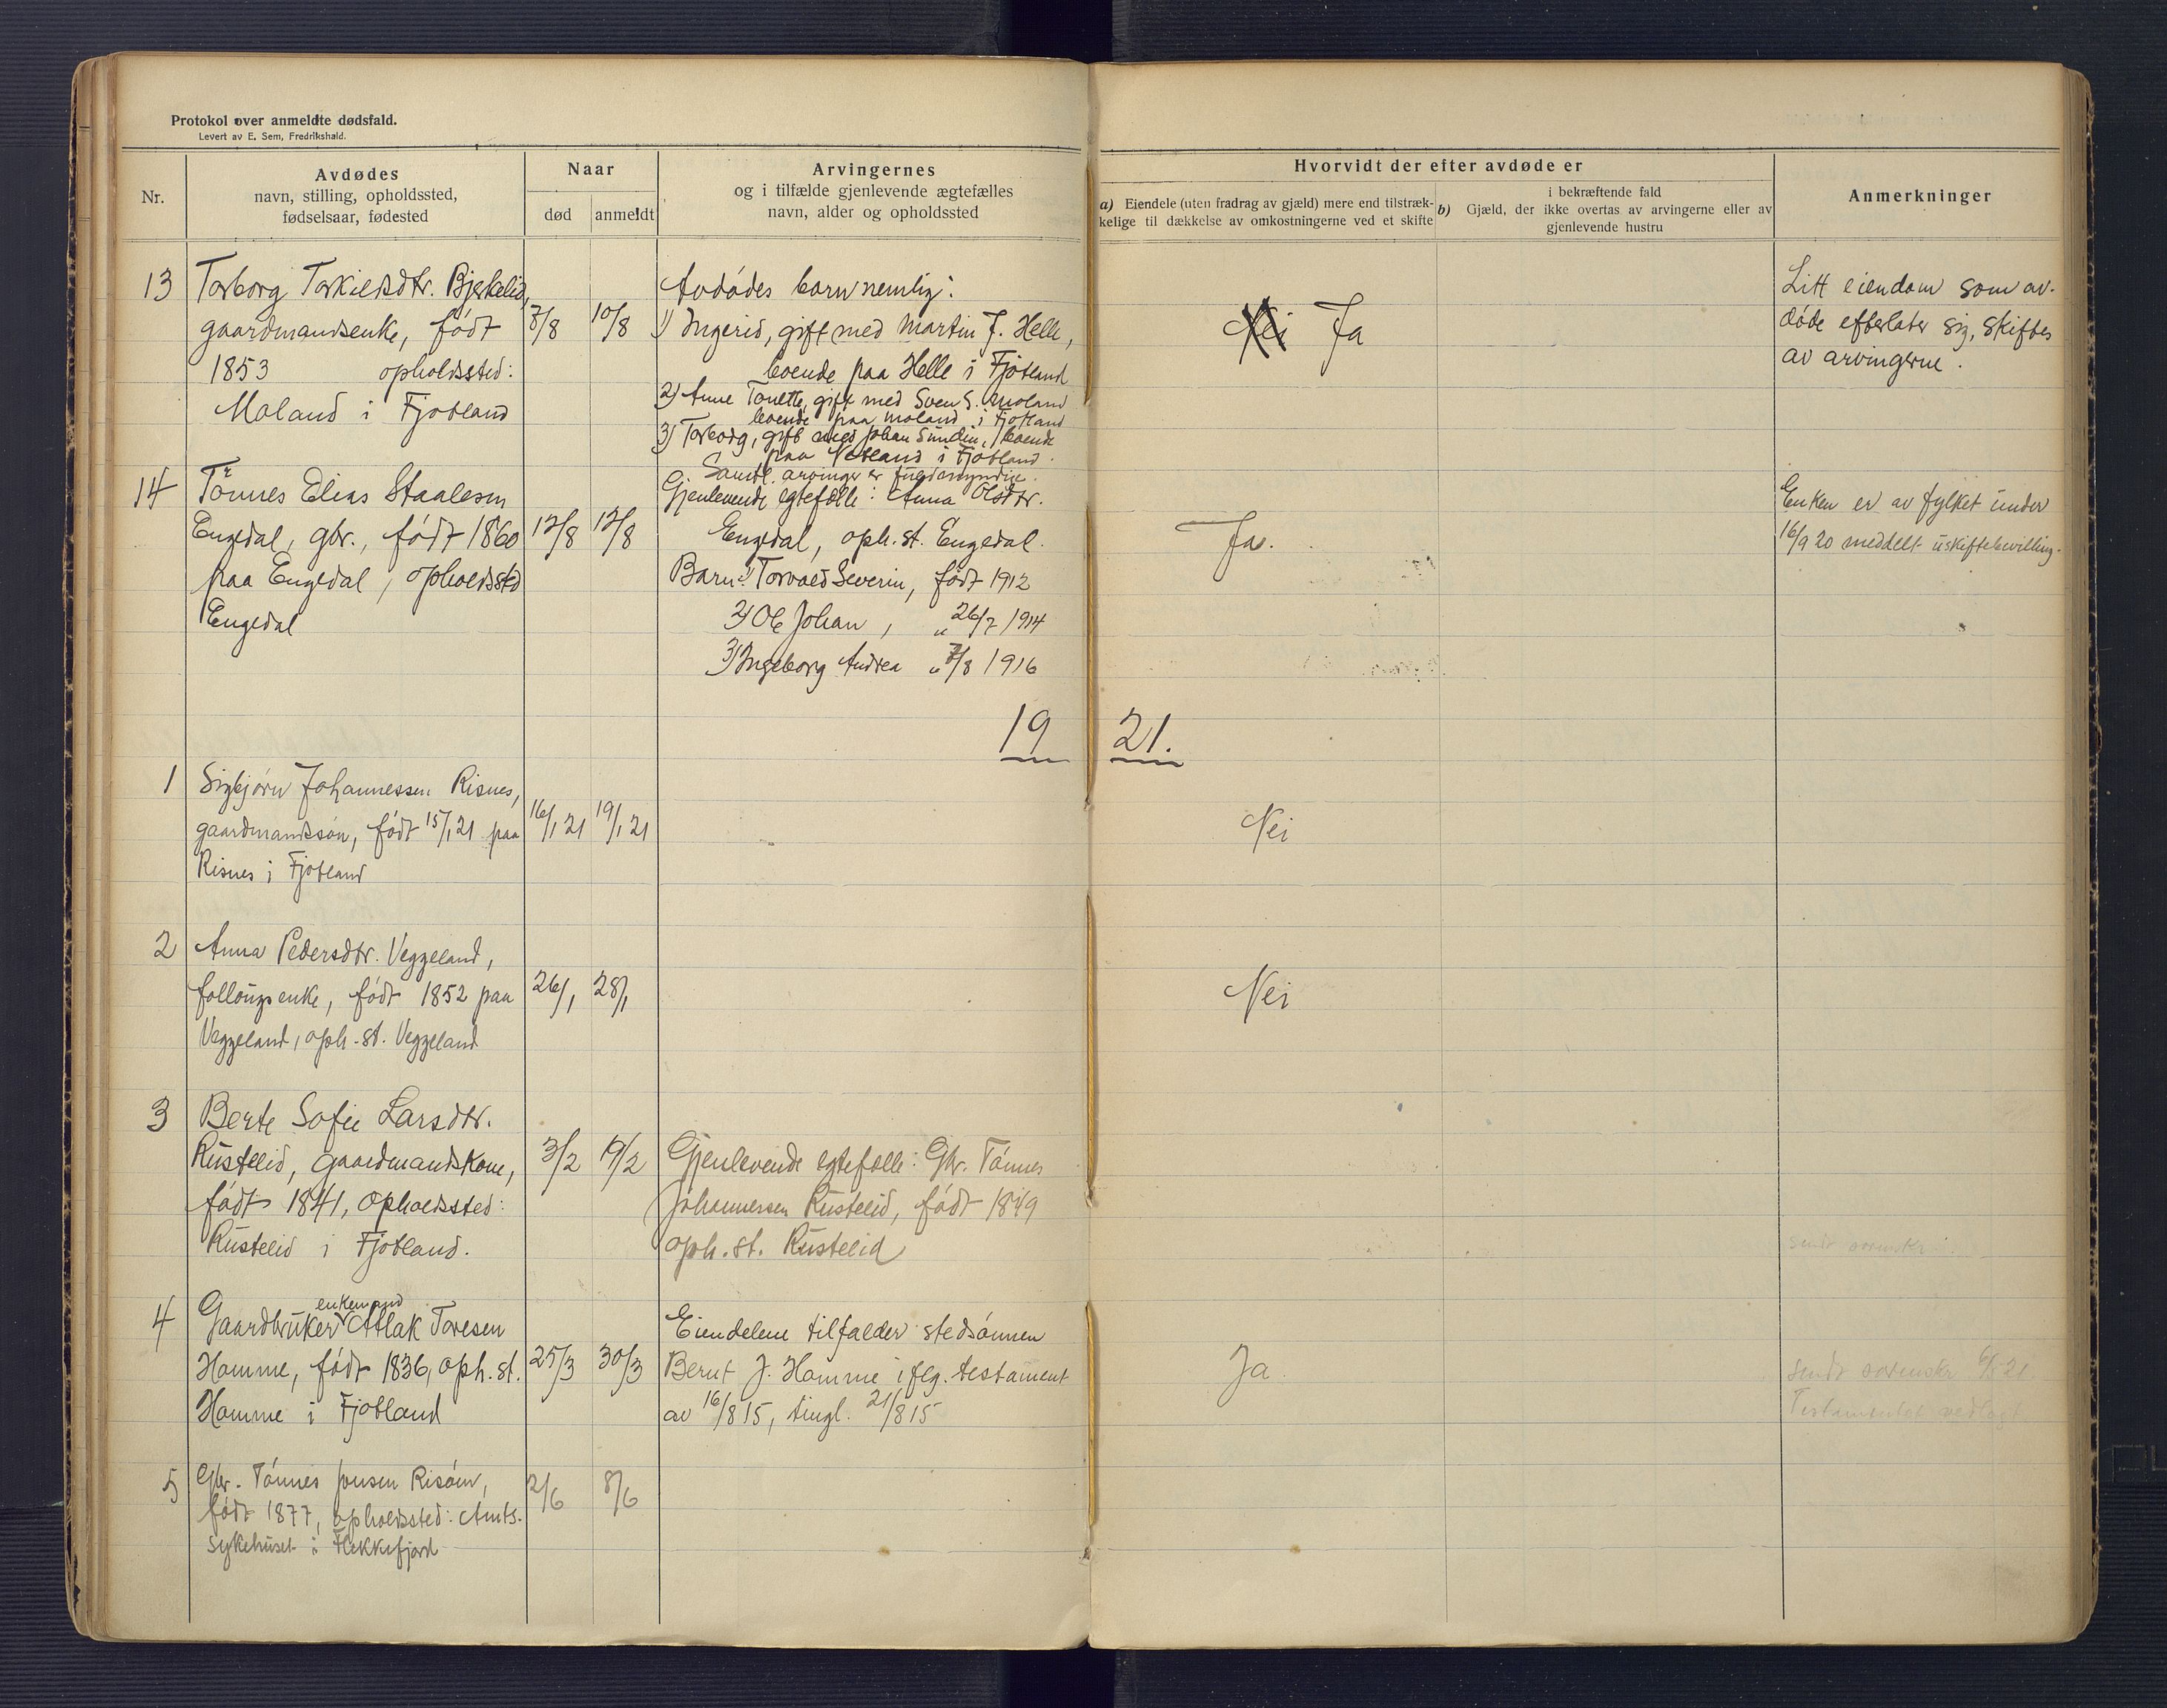 Protokol over anmeldte dødsfald.
Levert av E. Sem, Fredrikshald.
Nr.
Avdødes
navn, stilling, opholdssted,
fødselsaar, fødested
Naar
død
anmeldt
Arvingernes
og i tilfælde gjenlevende ægtefælles
navn, alder og opholdssted
Hvorvidt der efter avdøde er
a) Eiendele (uten fradrag av gjæld) mere end tilstræk-
kelige til dækkelse av omkostningerne ved et skifte
i bekræftende fald
b) Gjæld, der ikke overtas av arvingerne eller av
gjenlevende hustru
Anmerkninger
13
Torborg Torkielsdtr. Bjerkelid,
gaardmandsenke, født
1853 opholdssted:
Moland i Fjotland
7/8
10/8
Avdødes barn nemlig:
1) Ingerid, gift med Martin J. Helle,
boende paa Helle i Fjotland
2) Anne Tonette, gift med Sven S. Moland
boende paa Moland i Fjotland
3) Torborg, gift med Johan Sundin, boende
paa Netland i Fjotland.
Samtl. arvinger er fuldmyndige.
Nei Ja
Litt eiendom som av-
døde efterlater sig, skiftes
av arvingerne.
14
Tønnes Elias Staalesen
Engedal, gbr., født 1860
paa Engedal, opholdssted
Engedal
12/8
12/8
Gjenlevende egtefælle: Anna Olsdtr.
Engedal, oph. st. Engedal.
Barn: 1) Torvald Severin, født 1912
2) Ole Johan, " 26/7 1914
3) Ingeborg Andrea " 7/8 1916
Ja.
Enken er av fylket under
16/9 20 meddelt uskiftebevilling.
19 21.
1
Sigbjørn Johannessen Risnes,
gaardmandssøn, født 15/1 21 paa
Risnes i Fjotland
16/1 21
19/1 21
Nei
2
Anna Pedersdtr. Veggeland,
follougsenke, født 1852 paa
Veggeland, oph. st. Veggeland
26/1
28/1
Nei
3
Berte Sofie Larsdtr.
Rustelid, gaardmandskone,
født 1841, opholdssted:
Rustelid i Fjotland.
3/2
19/2
Gjenlevende egtefælle: Gbr. Tønnes
Johannesen Rustelid, født 1849
oph. st. Rustelid
sendt sorenskr.
4
enkemand
Gaardbruker Atlak Toresen
Homme, født 1836, oph. st.
Homme i Fjotland
25/3
30/3
Eiendelene tilfalder stedsønnen
Bernt J. Homme i flg. testament
av 16/8 15, tingl. 21/8 15
Ja
sendt sorenskr. 6/5 21.
Testamentet vedlagt
5
Gbr. Tønnes Jonsen Risøen,
født 1877, opholdssted: Amts-
sykehuset i Flekkefjord
2/6
8/6